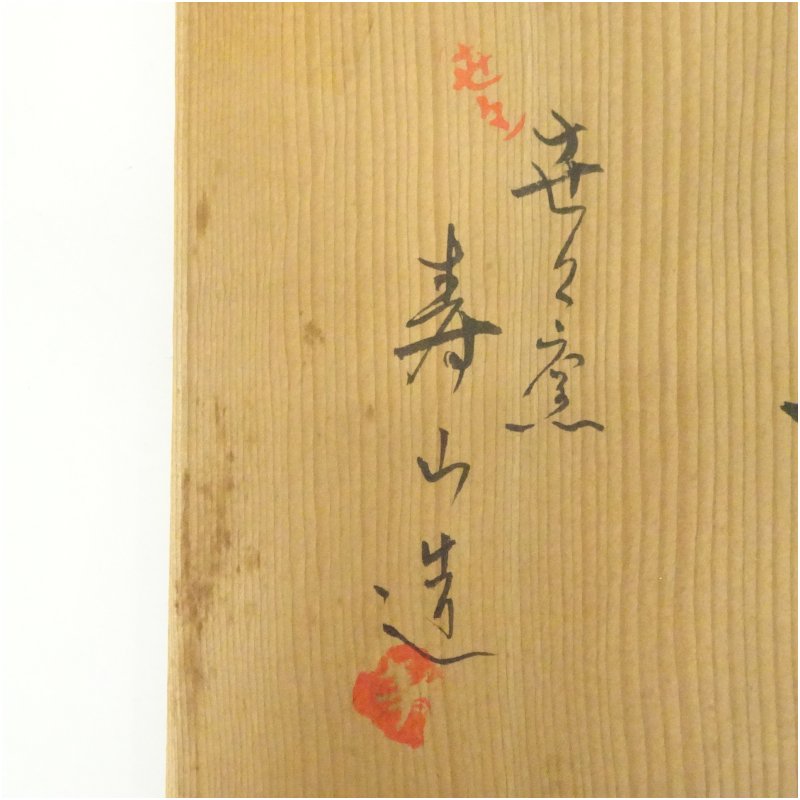 㐂々窯
寿山造